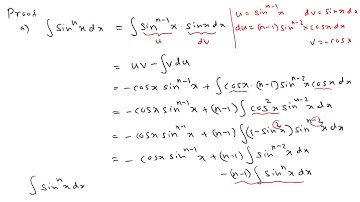 Proof
a) ∫ sinⁿx dx = ∫ sinⁿ⁻¹x · sinx dx | u = sinⁿ⁻¹x dv = sinx dx
u dv du = (n-1) sinⁿ⁻²x cosx dx
= uv - ∫ v du v = -cosx
= - cosx sinⁿ⁻¹x + ∫ cosx · (n-1) sinⁿ⁻²x cosx dx
= - cosx sinⁿ⁻¹x + (n-1) ∫ cos²x sinⁿ⁻²x dx
= - cosx sinⁿ⁻¹x + (n-1) ∫ (1-sin²x) sinⁿ⁻²x dx
= - cosx sinⁿ⁻¹x + (n-1) ∫ sinⁿ⁻²x dx
∫ sinⁿx dx - (n-1) ∫ sinⁿx dx